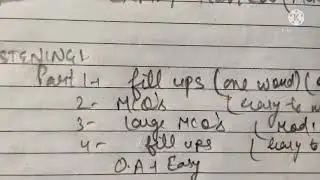 STENING:
Part 1 → fill ups (one word) (
2 - MCQ's (easy to m
3 - large MCQ's (Mod
4 - fill ups (easy to
O.A → Easy